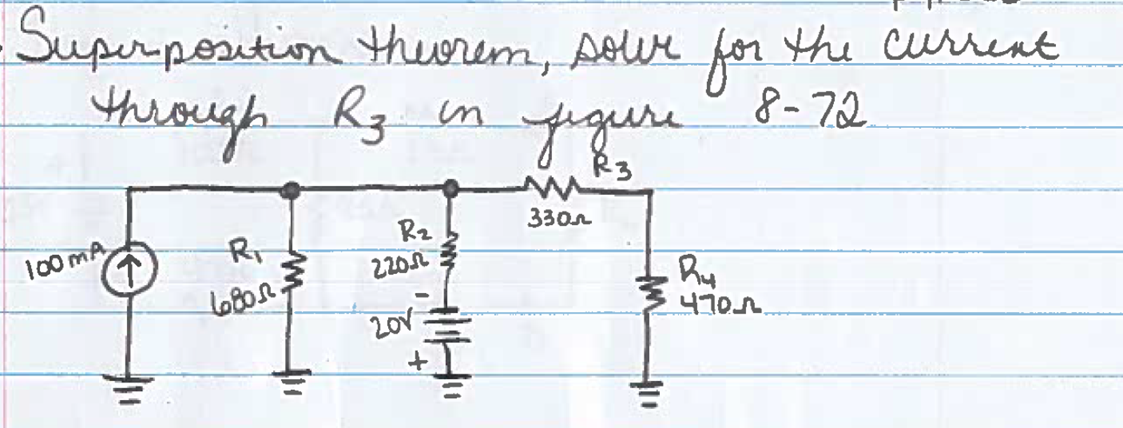 Superposition theorem, solve for the current
through R3 in figure 8-72
R3
330Ω
100mA
R1
680Ω
R2
220Ω
-
20V
+
R4
470Ω